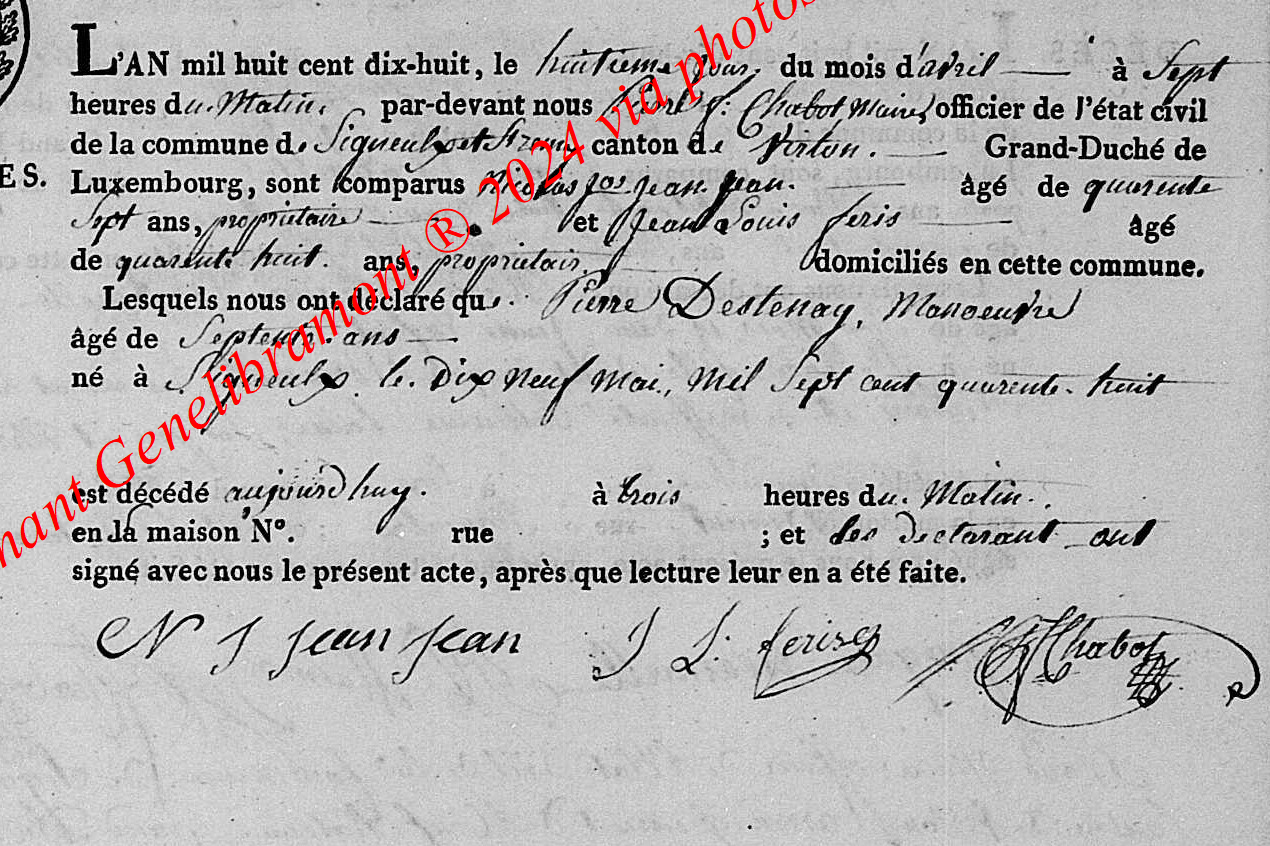 L'AN mil huit cent dix-huit, le huitieme jour du mois d'avril à Sept
heures du Matin. par-devant nous f: Chabot Maire, officier de l'état civil
de la commune de Signeulx et canton de Virton. Grand-Duché de
ES. Luxembourg, sont comparus Nicolas jos jean jean. âgé de quarente
Sept ans, propriétaire et Jean Louis feris âgé
de quarente huit. ans, propriétair. domiciliés en cette commune.
Lesquels nous ont déclaré que. Pierre Destenay, Manoeuvre
âgé de Septente ans
né à Signeulx le Dix Neuf Mai, Mil Sept cent quarente huit
est décédé aujourd'huy. à trois heures du. Matin.
en la maison N°. rue ; et les Declarant ont
signé avec nous le présent acte, après que lecture leur en a été faite.
N J jean jean J L: ferisez Chabot
nant Genelibramont ® 2024 via photos